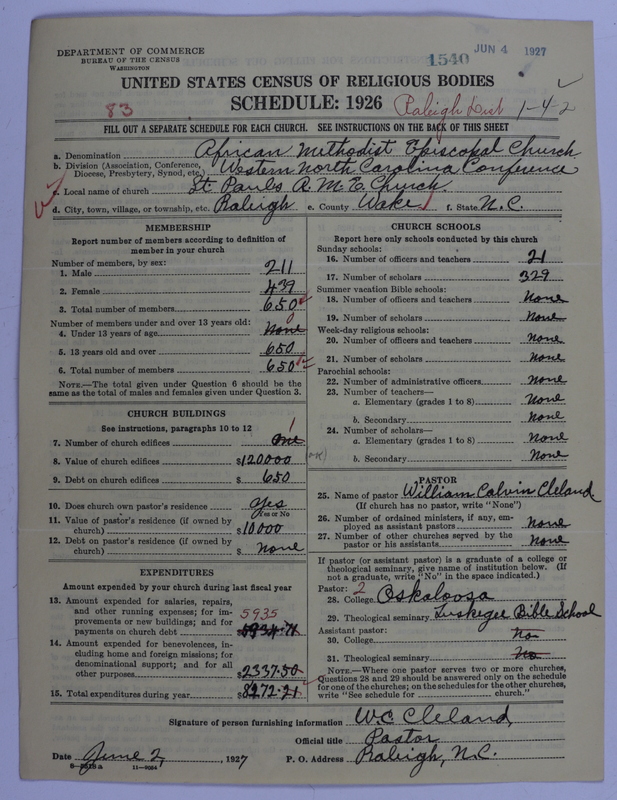 DEPARTMENT OF COMMERCE
BUREAU OF THE CENSUS
WASHINGTON
1540 JUN 4 1927
UNITED STATES CENSUS OF RELIGIOUS BODIES
SCHEDULE: 1926
83
Raleigh Dist 1-4-2
FILL OUT A SEPARATE SCHEDULE FOR EACH CHURCH. SEE INSTRUCTIONS ON THE BACK OF THIS SHEET
a. Denomination African Methodist Episcopal Church
b. Division (Association, Conference, Diocese, Presbytery, Synod, etc.) Western North Carolina Conference
c. Local name of church St. Pauls A. M. E. Church
d. City, town, village, or township, etc. Raleigh e. County Wake f. State N.C.
MEMBERSHIP
Report number of members according to definition of
member in your church
Number of members, by sex:
1. Male 211
2. Female 439
3. Total number of members 650
Number of members under and over 13 years old:
4. Under 13 years of age None 0
5. 13 years old and over 650
6. Total number of members 650
NOTE.—The total given under Question 6 should be the
same as the total of males and females given under Question 3.
CHURCH BUILDINGS
See instructions, paragraphs 10 to 12
7. Number of church edifices One 1
8. Value of church edifices $120000
9. Debt on church edifices $ 650
10. Does church own pastor's residence Yes
(Yes or No
11. Value of pastor's residence (if owned by
church) $10000
12. Debt on pastor's residence (if owned by
church) $ None
EXPENDITURES
Amount expended by your church during last fiscal year
13. Amount expended for salaries, repairs,
and other running expenses; for im-
provements or new buildings; and for
payments on church debt 5935 $5934.71
14. Amount expended for benevolences, in-
cluding home and foreign missions; for
denominational support; and for all
other purposes $2337.50
15. Total expenditures during year $8272.21
CHURCH SCHOOLS
Report here only schools conducted by this church
Sunday schools:
16. Number of officers and teachers 21
17. Number of scholars 329
Summer vacation Bible schools:
18. Number of officers and teachers None
19. Number of scholars None
Week-day religious schools:
20. Number of officers and teachers None
21. Number of scholars None
Parochial schools:
22. Number of administrative officers None
23. Number of teachers—
a. Elementary (grades 1 to 8) None
b. Secondary None
24. Number of scholars—
a. Elementary (grades 1 to 8) None
b. Secondary None
PASTOR
25. Name of pastor William Calvin Cleland
(If church has no pastor, write "None")
26. Number of ordained ministers, if any, em-
ployed as assistant pastors None
27. Number of other churches served by the
pastor or his assistants None
If pastor (or assistant pastor) is a graduate of a college or
theological seminary, give name of institution below. (If
not a graduate, write "No" in the space indicated.)
Pastor: 2
28. College Oskaloosa
29. Theological seminary Tuskegee Bible School
Assistant pastor:
30. College No
31. Theological seminary No
NOTE.—Where one pastor serves two or more churches,
Questions 28 and 29 should be answered only on the schedule
for one of the churches; on the schedules for the other churches,
write "See schedule for church."
Signature of person furnishing information W.C. Cleland
Official title Pastor
Date June 2, 1927 P. O. Address Raleigh, N.C.